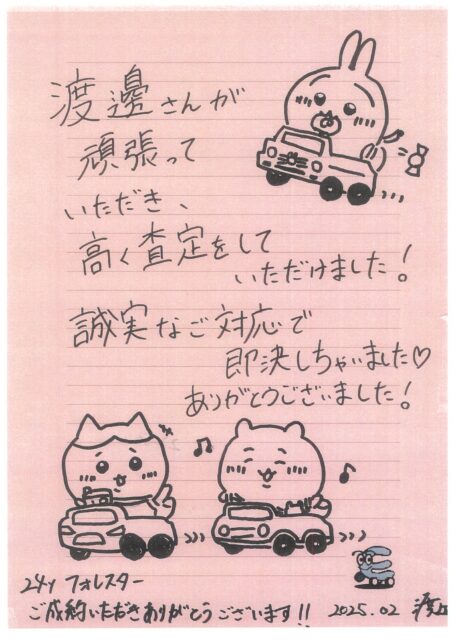 渡邊さんが
頑張って
いただき、
高く査定をして
いただけました!
誠実なご対応で
即決しちゃいました♡
ありがとうございました!
24y フォレスター
ご成約いただきありがとうございます!! 2025.02